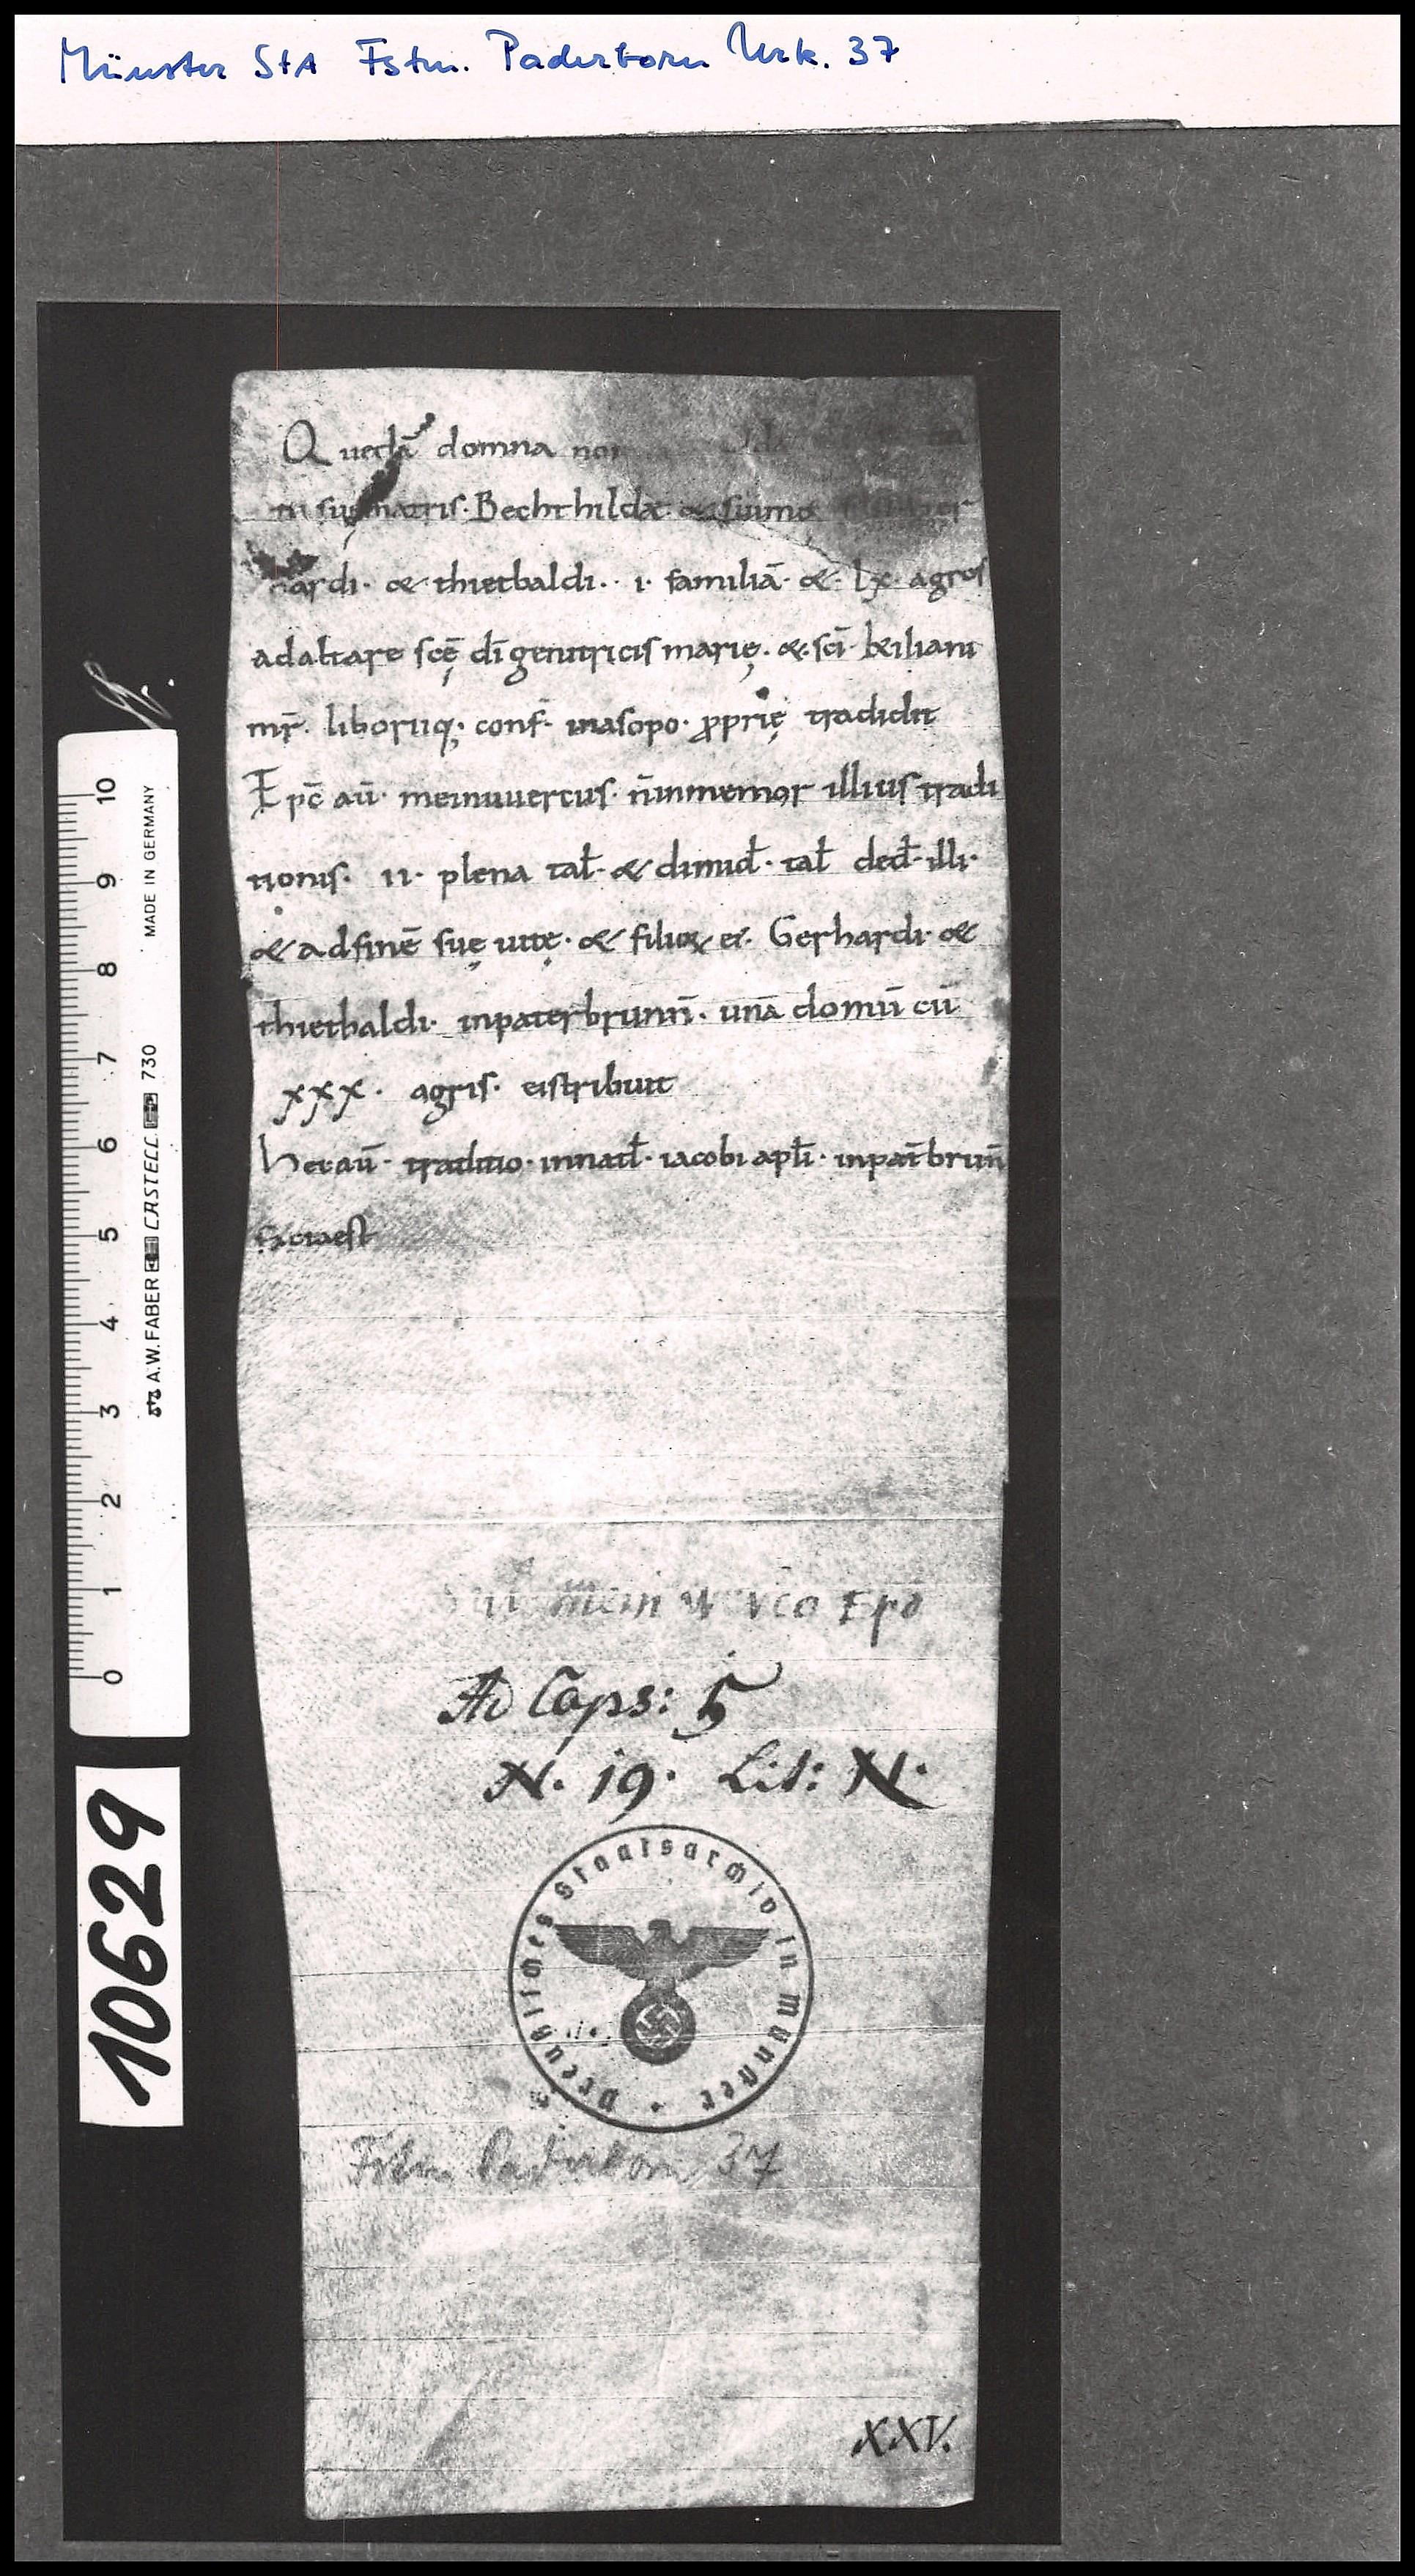 Münster StA Fstm. Paderborn Urk. 37
Quedā domna
tū suę matris· Bechthildæ· & suimo
hardi· & thietbaldi·· i· familiā· & · lx· agros
adaltare scę̄ dī genitricis marię· & · scī · kiliani
mr̄· liboriiq; conf· inasopo· ꝓprię tradidit
Epc̄ aū· meinuuercus· n̄inmemor illius tradi
tionis· ii· plena tał· & dimid̄· tał ded̄· illi·
& adfinē suę uitę· & filioꝝ ei· Gerhardi· &
thietbaldi· inpaterbrunn̄· unā domū cū
xxx· agris· eistribuit
Hec aū· traditio· innatł· iacobi apłi· inpat̄brun̄
factaest
mein Epō
Ad Caps: 5
N. 19. Lit: N.
Preußisches Staatsarchiv in Münster
Fstm Paderborn 37
XXV.
10 9 8 7 6 5 4 3 2 1 0
A.W.FABER CASTELL 730 MADE IN GERMANY
10629